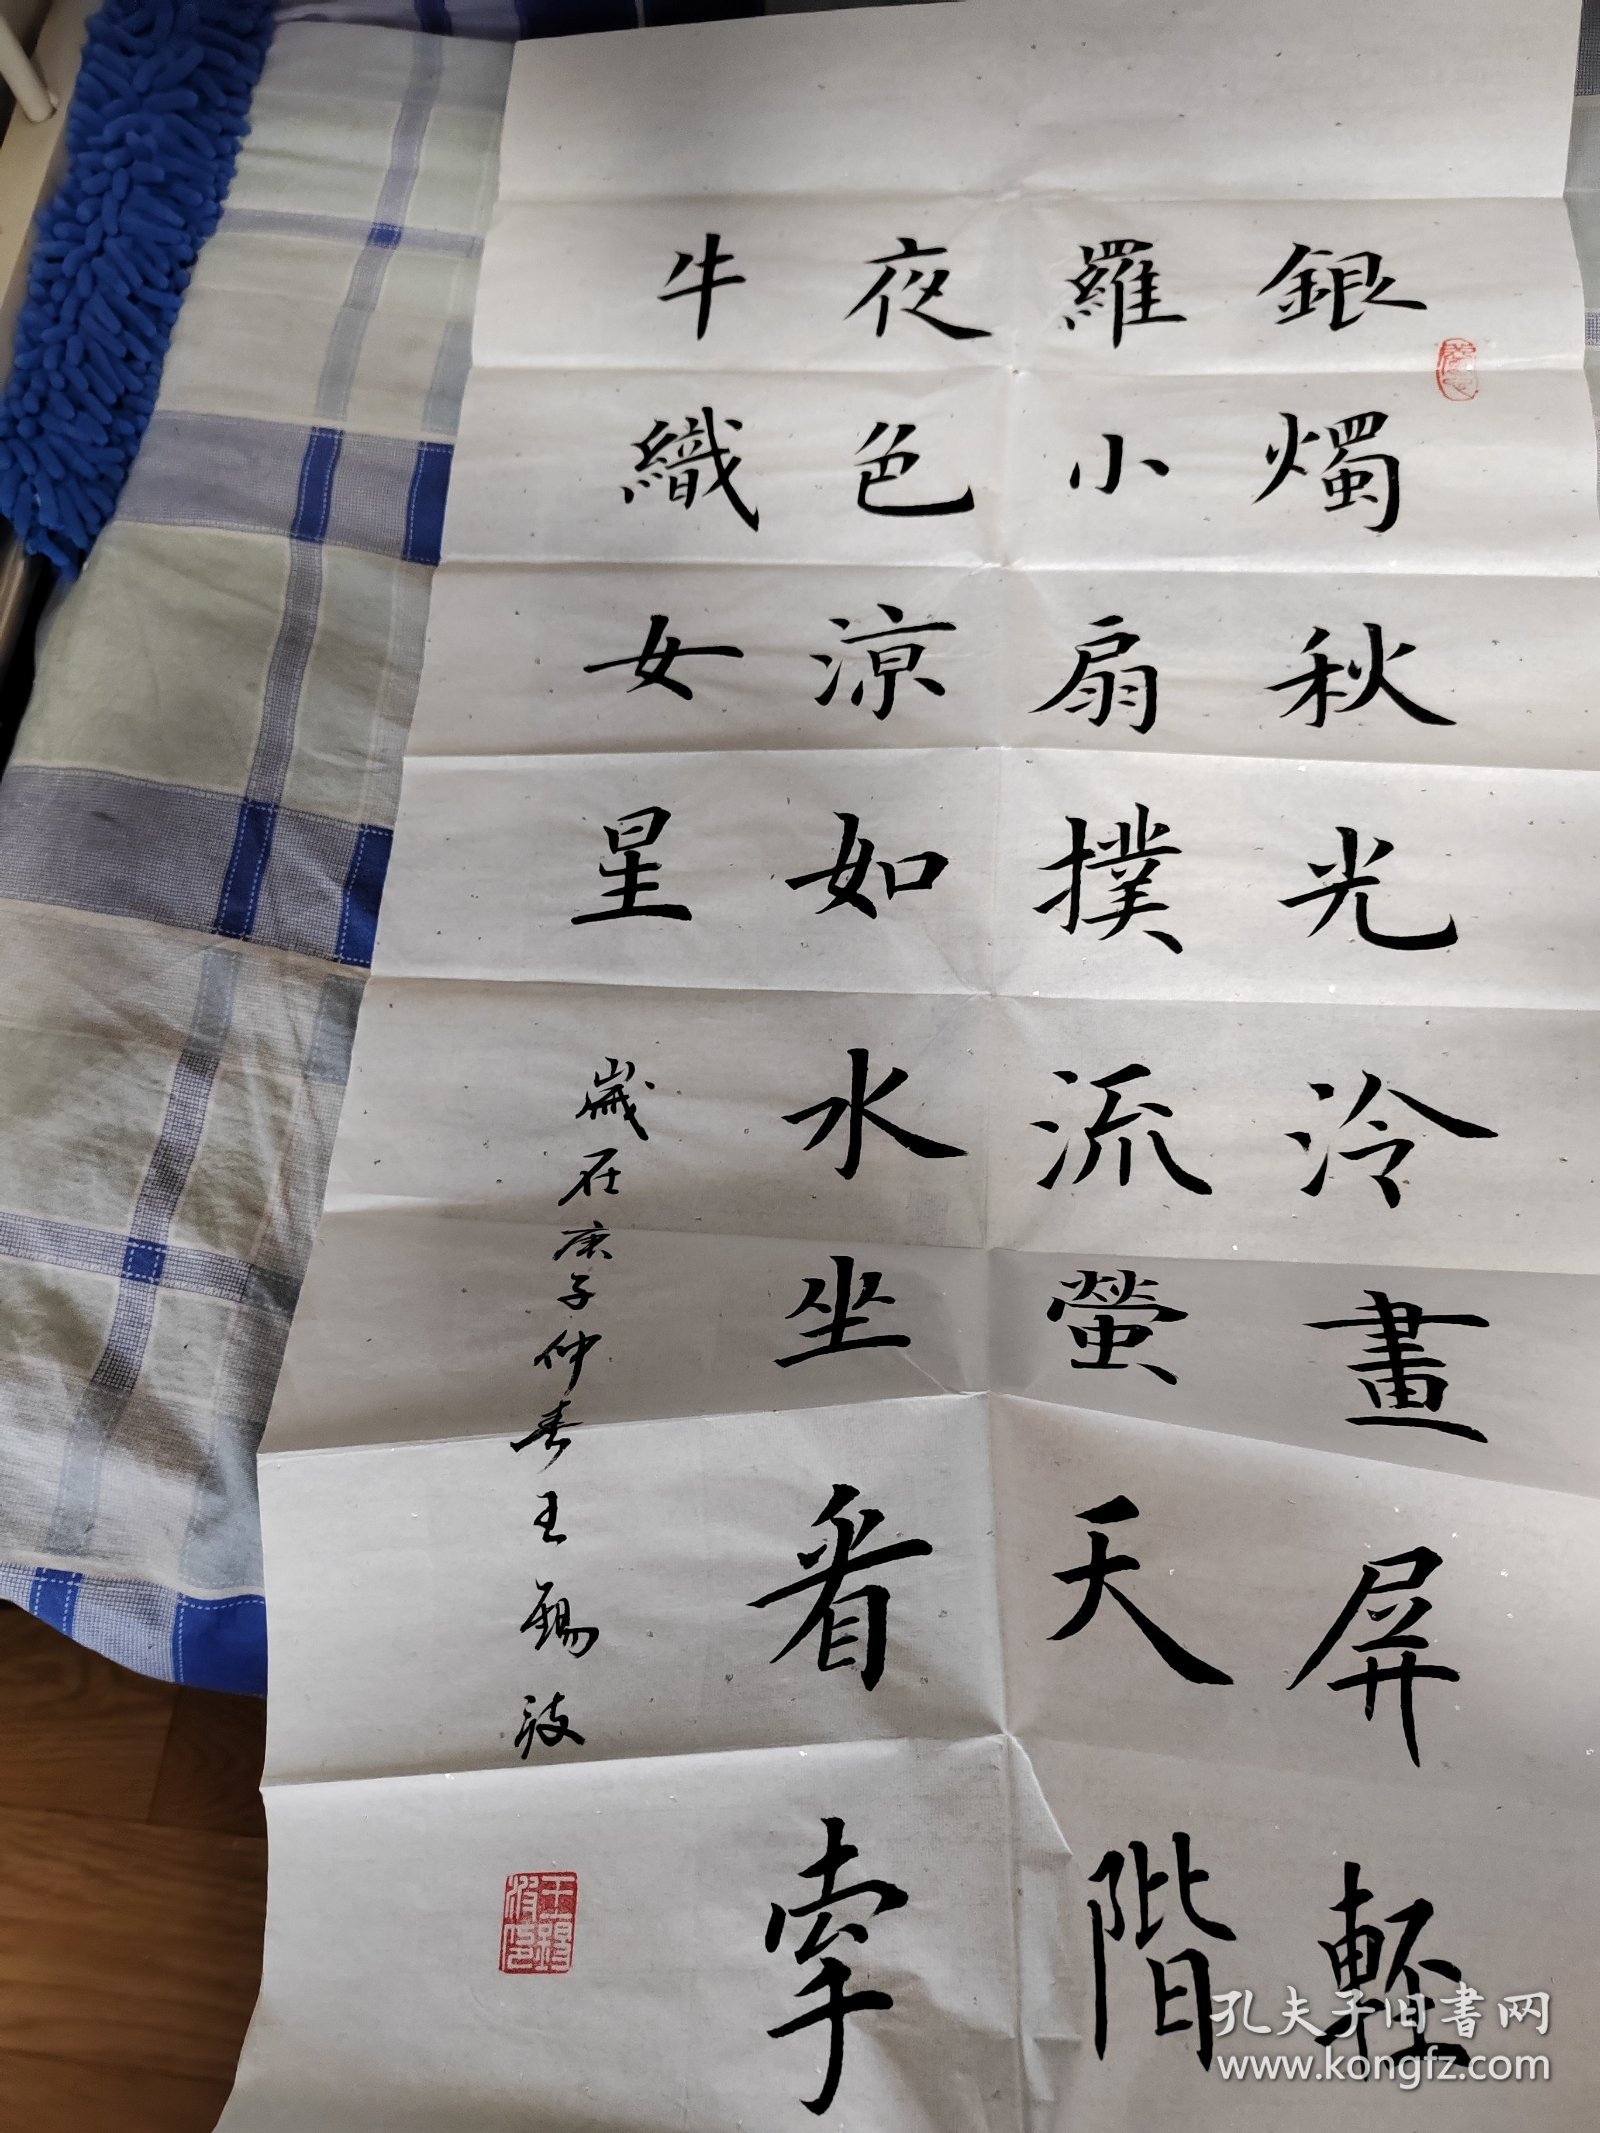 銀燭秋光冷畫屏輕
羅小扇撲流螢天階
夜色涼如水坐看牽
牛織女星
歲在庚子仲春王錫波
王錫波印
孔夫子旧书网
www.kongfz.com